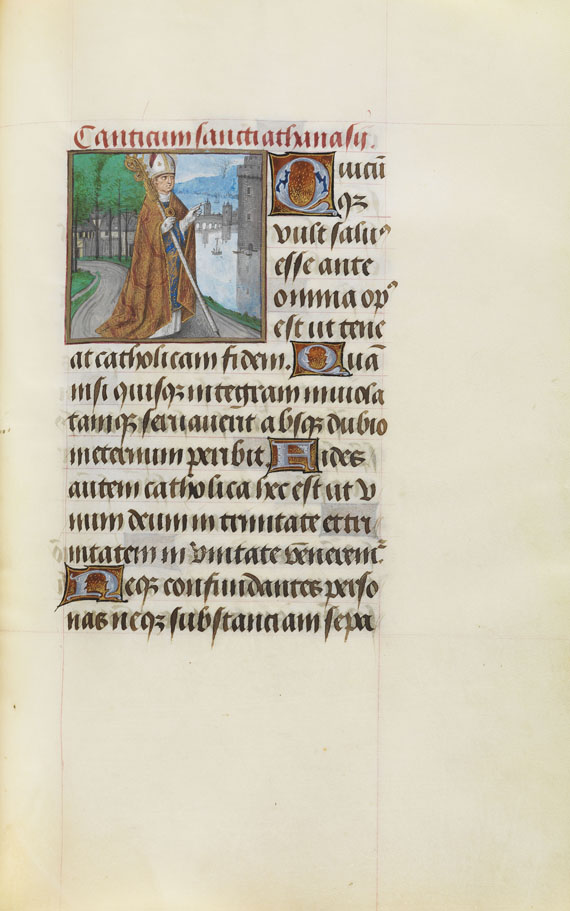 Canticum sancti athanasij.
Quicū
qȝ
vult saluꝰ
esse ante
omnia opꝰ
est ut tene
at catholicam fidem. Quā
nisi quisqȝ integram inuiola
tamqȝ seruauerit absqȝ dubio
ineternum peribit. Fides
autem catholica hec est ut v
num deum in trinitate et tri
nitatem in vnitate veneremᷣ
Neqȝ confundantes perso
nas neqȝ substanciam sepa